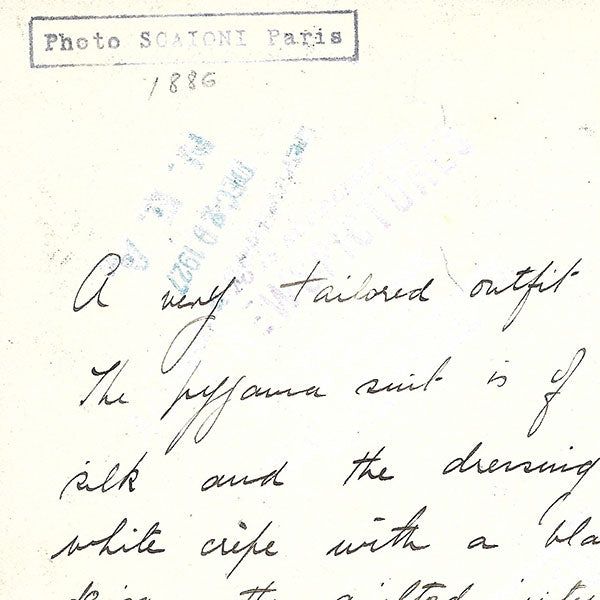 Photo SCAIONI Paris
1886
N. E. A
DEC 29 1927
A very tailored outfit
The pyjama suit is of
silk and the dressing
white crêpe with a bla
the quilted